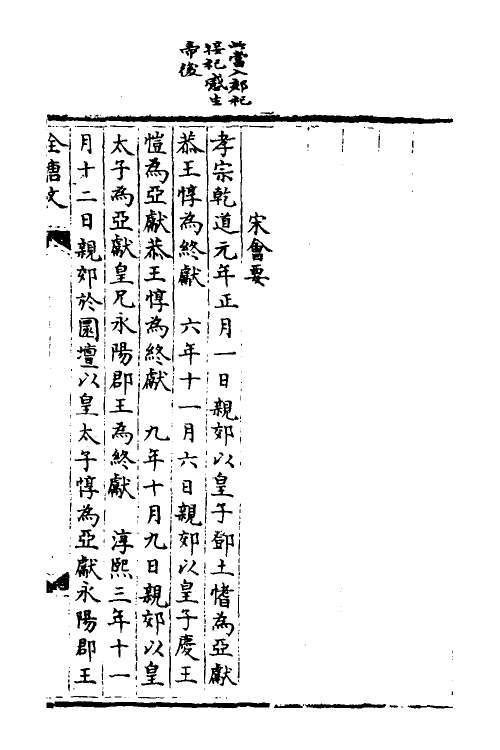 此當入郊祀
後祀感生
帝後
宋會要
孝宗乾道元年正月一日親郊以皇子鄧王愭為亞獻
恭王惇為終獻　六年十一月六日親郊以皇子慶王
愷為亞獻恭王惇為終獻　九年十月九日親郊以皇
太子為亞獻皇兄永陽郡王為終獻　淳熙三年十一
月十二日親郊於圜壇以皇太子惇為亞獻永陽郡王
全唐文